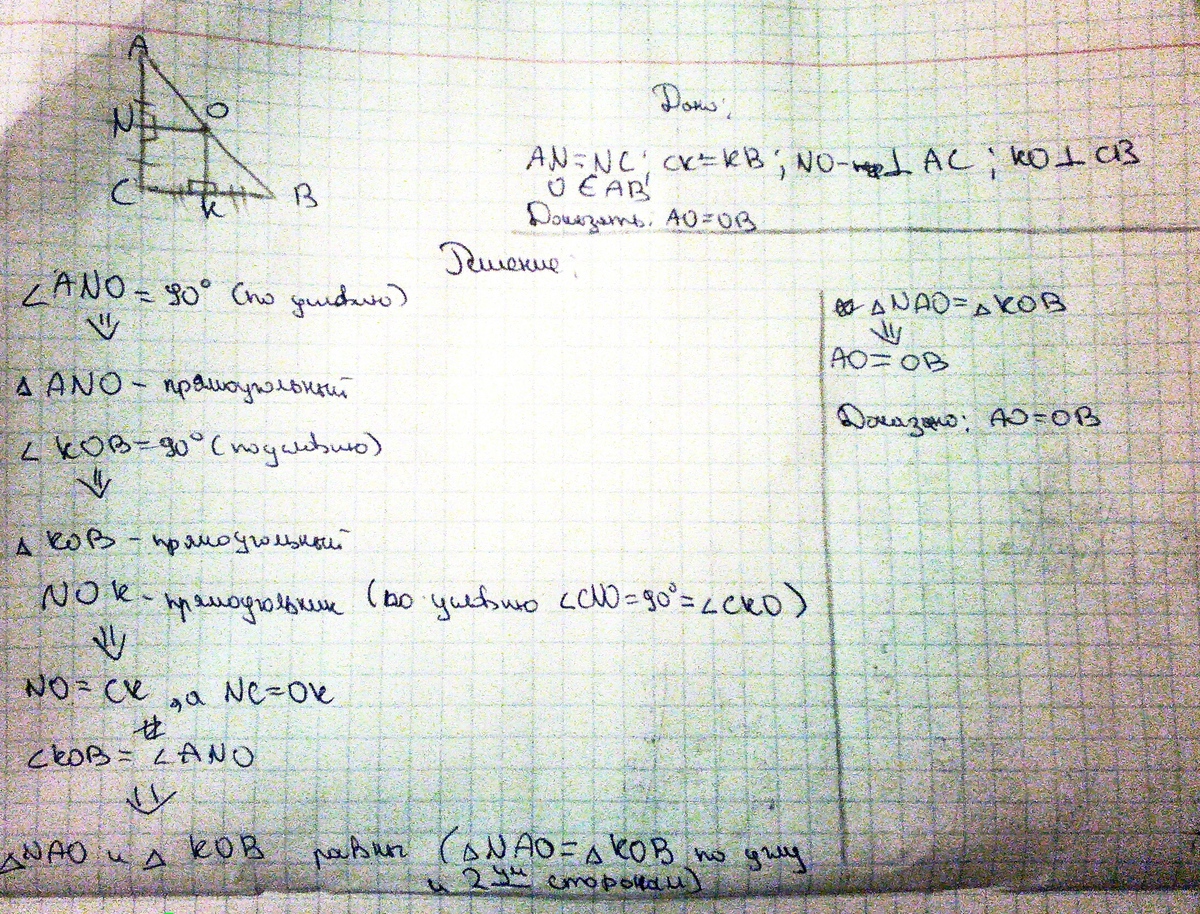 A
N
O
C
K
B
Дано:
AN=NC; CK=KB; NO-⊥ AC; KO⊥CB
O ∈ AB
Доказать: AO=OB
Решение:
∠ANO=90° (по условию)
⇓
△ ANO - прямоугольный
∠ KOB=90° (по условию)
⇓
△ KOB - прямоугольный
NOK - прямоугольник (по условию ∠CNO=90°=∠CKO)
⇓
NO= CK, а NC=OK
∠KOB= ∠ANO
⇓
△NAO и △ KOB равны (△NAO=△KOB по углу
и 2ум сторонам)
△NAO=△KOB
⇓
AO=OB
Доказано: AO=OB